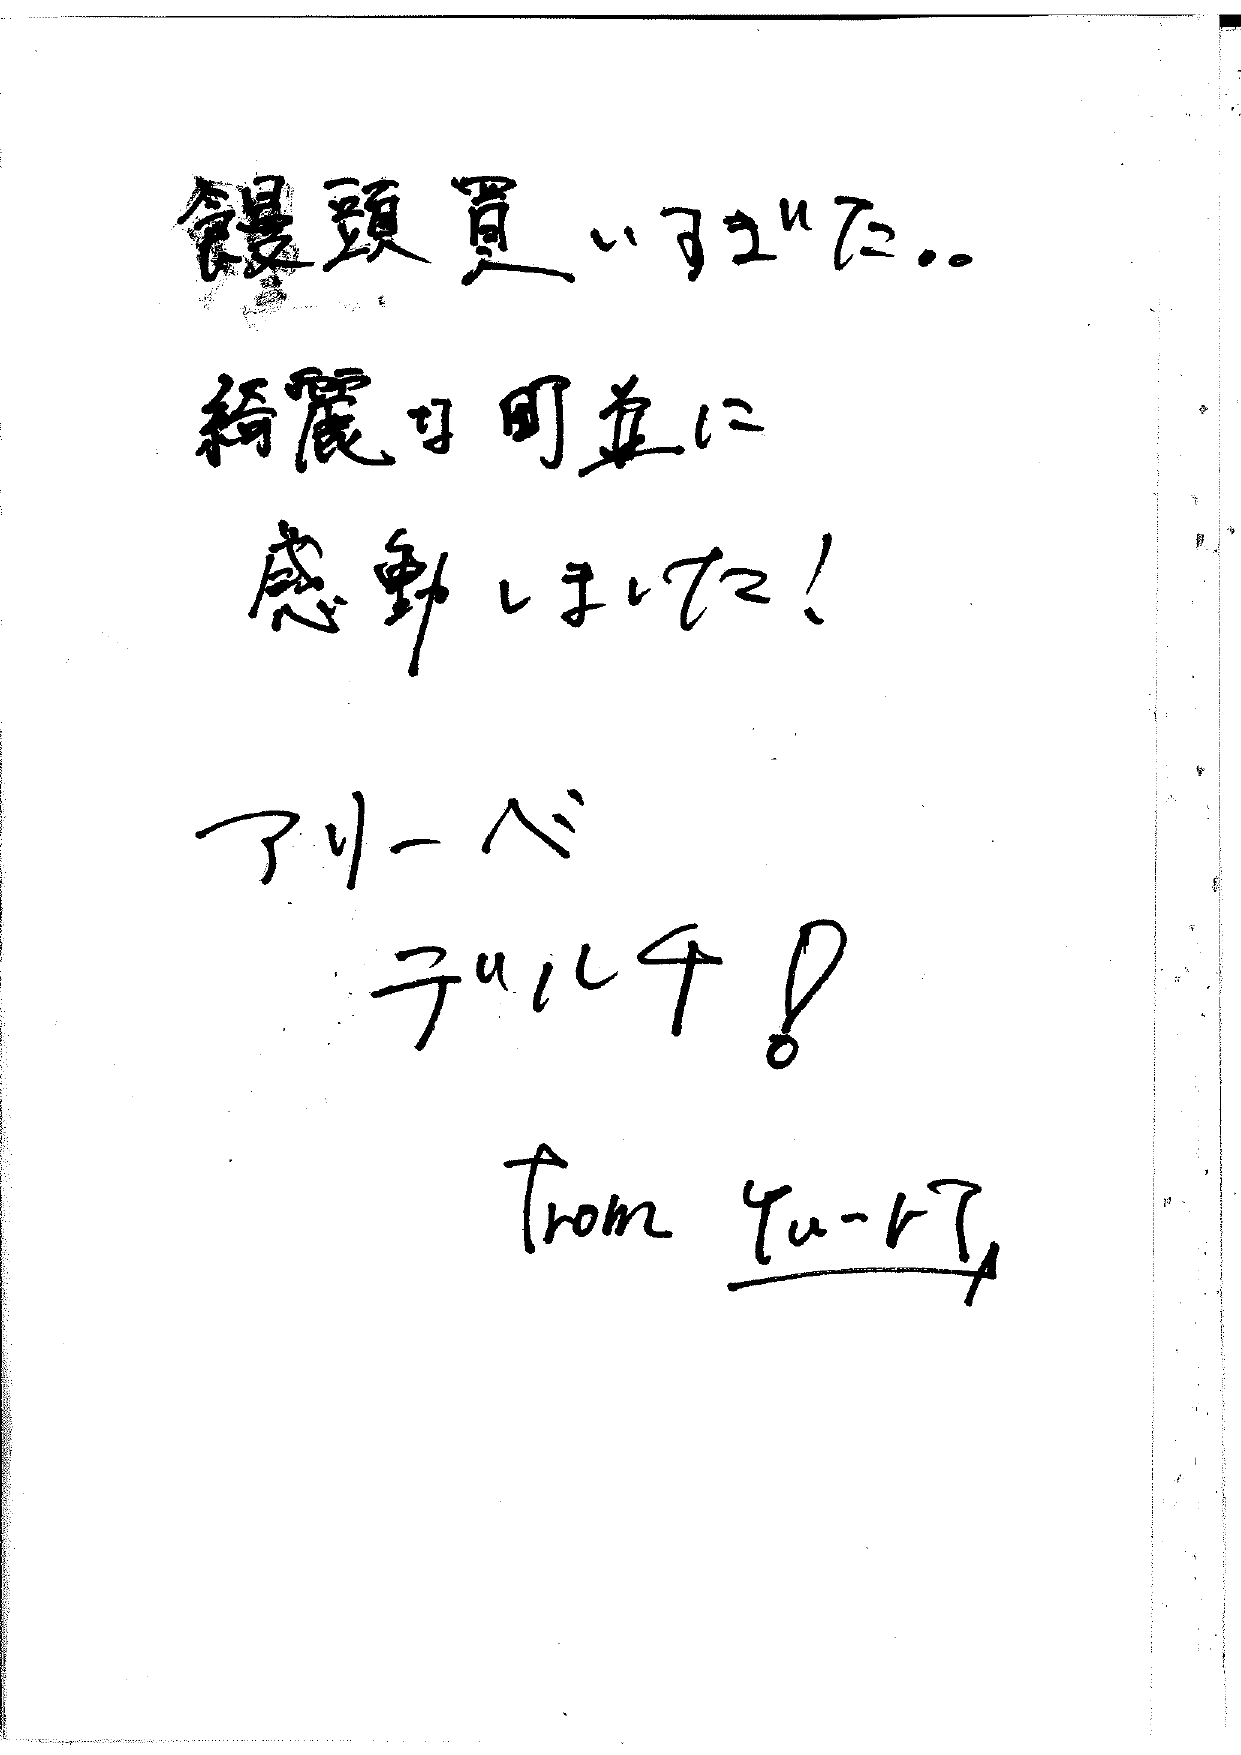 饅頭買いすぎた..
綺麗な町並に
感動しました!
アリーベ
デルチ!
from